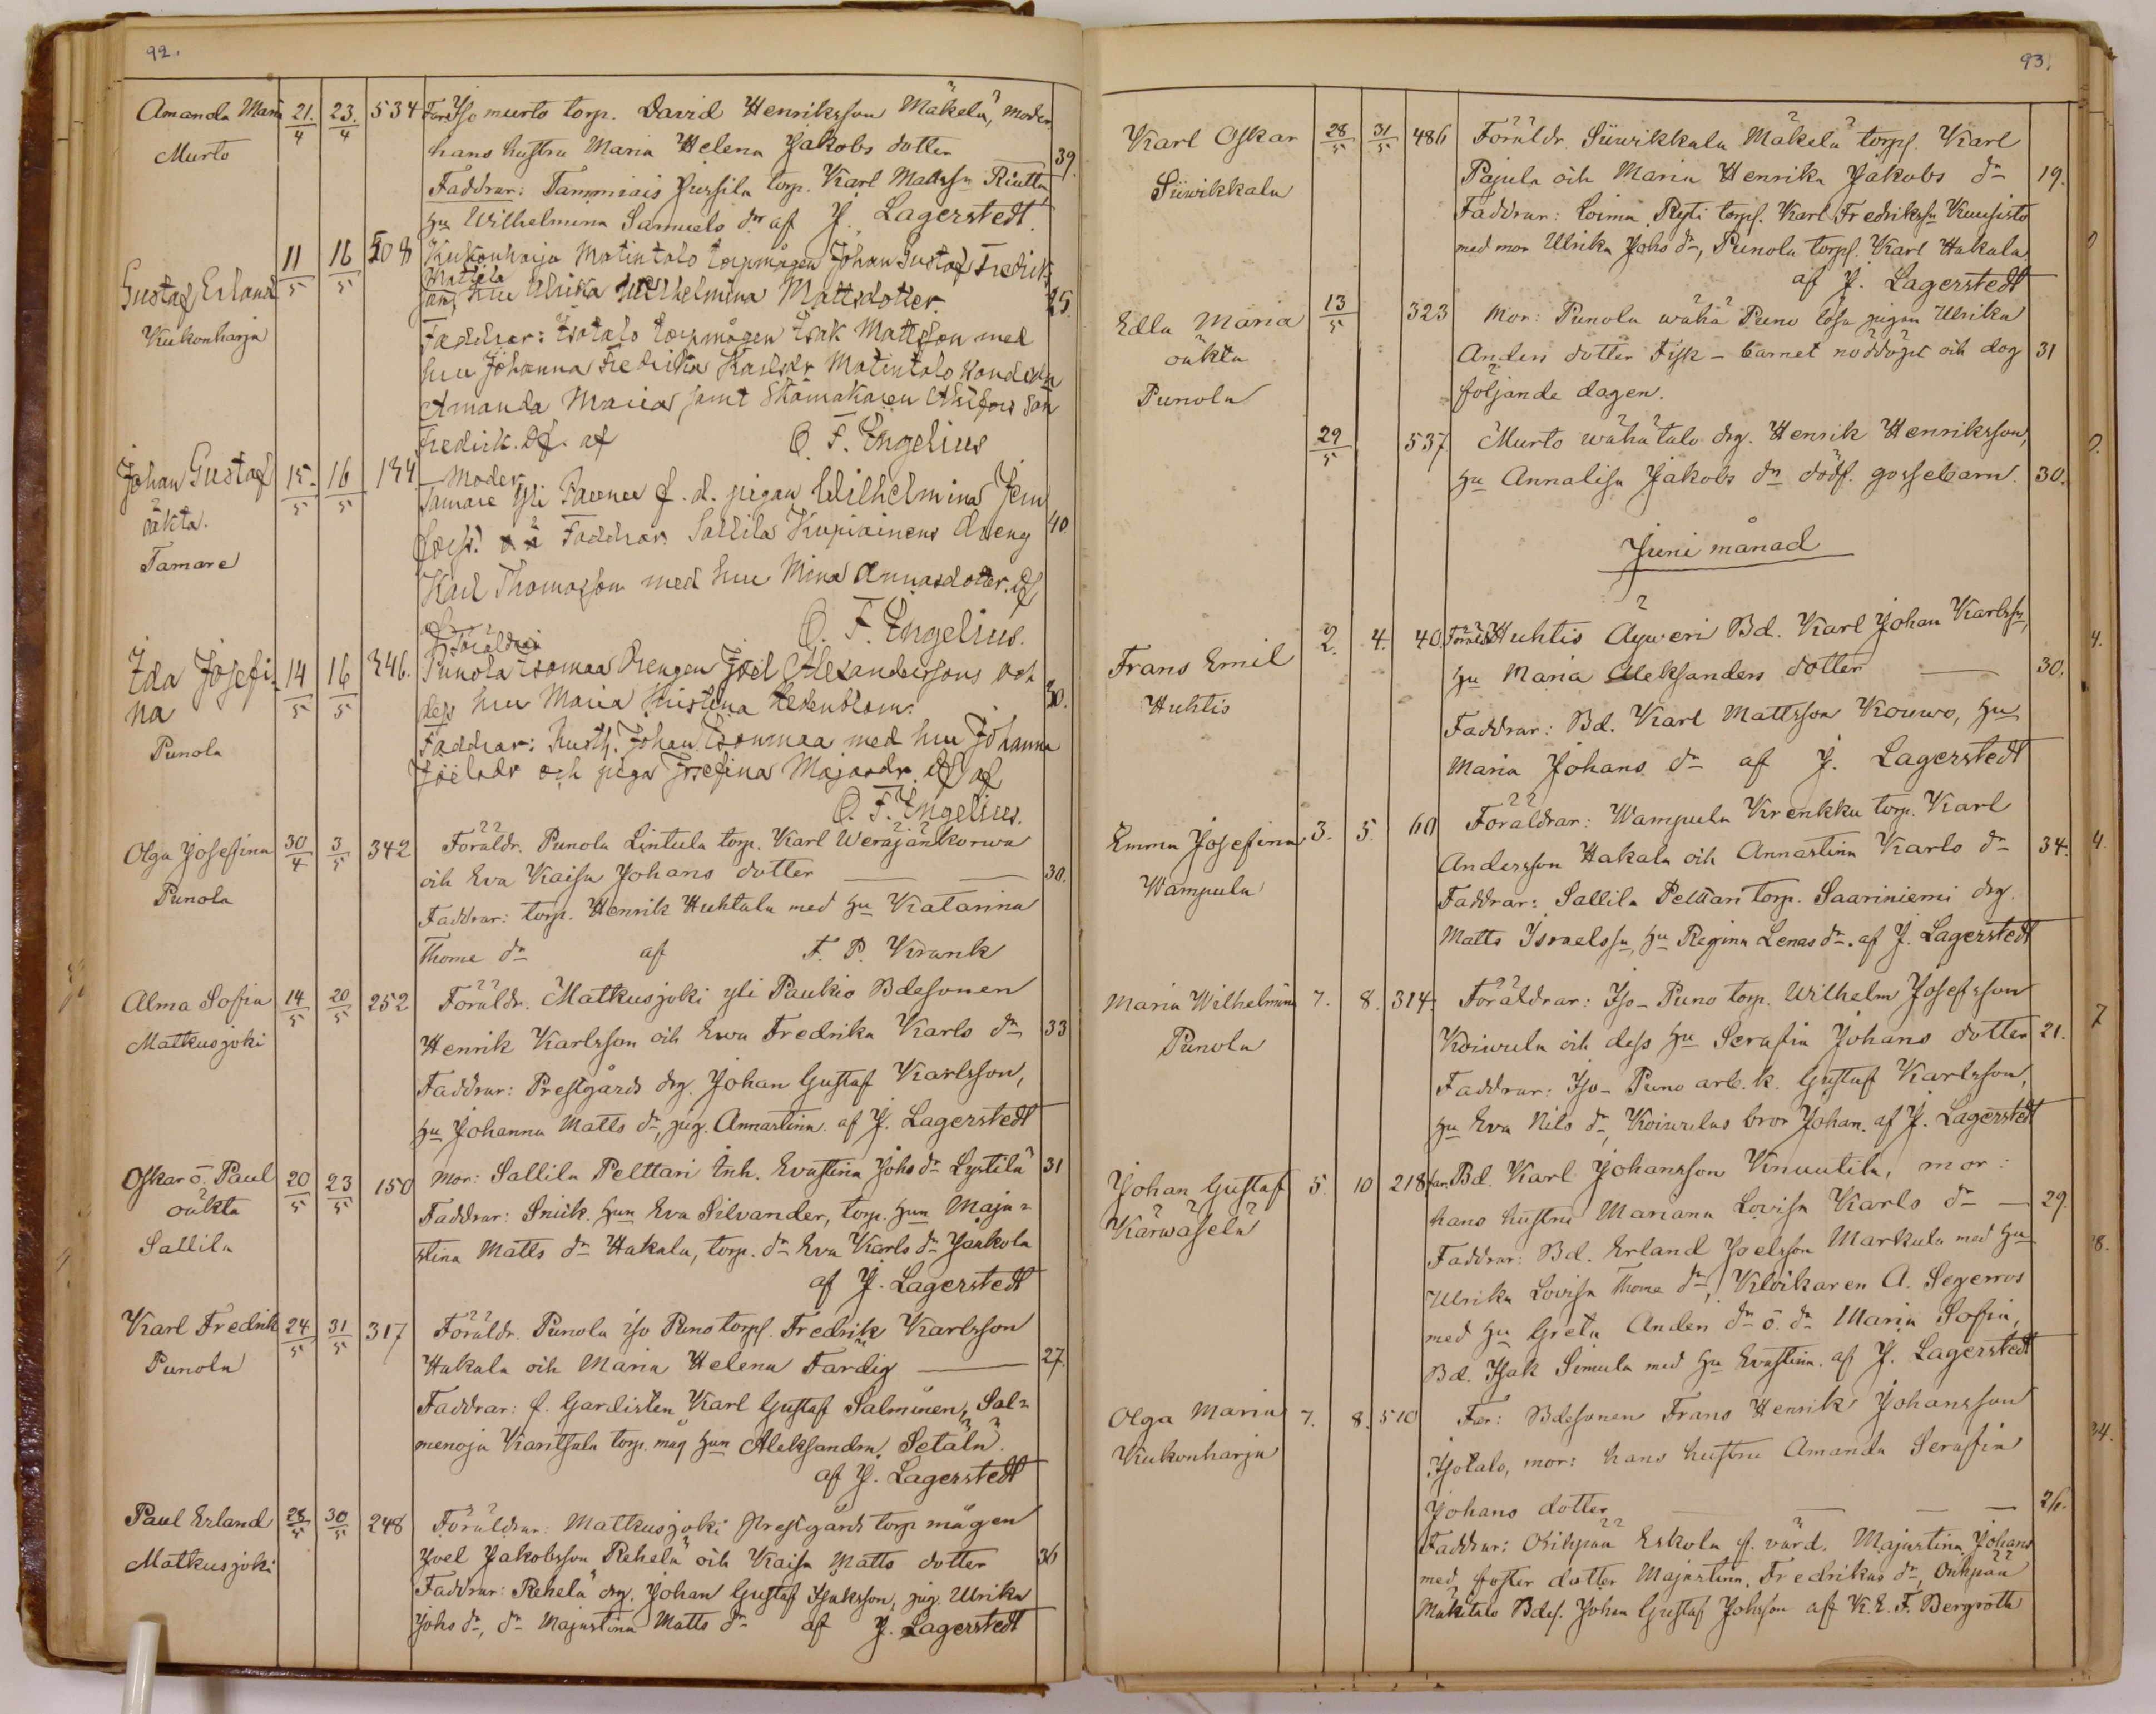 92.
Amanda Maria 21./4 23./4 534 Far: Iso murto torp. David Henriksson Mäkelä, moder
Murto hans hustru Maria Helena Jakobs dotter 39.
Faddrar: Tammiais Jussila torp. Karl Mattss Riutta,
hu Wilhelmina Samuels dr af J. Lagerstedt.
Gustaf Erland 11/5 16/5 508 Kukonharja Matintalo torpmågen Johan Gustaf Fredriks
Mattila
son, hu Ulrika Wilhelmina Mattsdotter. 25.
Kukonharja
Faddrar: Isotalo torpmågen Isak Mattsson med
hu Johanna Fredrika Karlsdr Matintalo
Amanda Maria samt Skomakaren
Fredrik. Df. af O. F. Engelius
Johan Gustaf 15./5 16/5 134 Moder
oäkta. Tamare yli f. d. pigan Wilhelmina
Faddrar. Sallila Kupiainens dreng 40
Tamare Karl Thomasson med hu Mina Annasdoter. df
af O. F. Engelius.
Föräldrar
Ida Josefi- 14/5 16/5 346. Punola Isomaa drengen Joel Alexanderssons och
na dess hu Maria Kristina 30.
Punola Faddrar: husb. Johan Isomaa med hu Johanna
Joelsdr och piga Josefina Majasdr. df af
O. F. Engelius.
Olga Josefina 30/4 3/5 342 Föräldr. Punola Lintula torp. Karl Weräjänkorwa
och Eva Kaisa Johans dotter 30.
Punola Faddrar: torp. Henrik Huhtala med hu Katarina
Thome dr af F. P. Krank
Alma Sofia 14/5 20/5 252 Föräldr. Matkusjoki yli Paukio Bdesonen
Matkusjoki Henrik Karlsson och Ewa Fredrika Karls dr 33
Faddrar: Prestgårds drg. Johan Gustaf Karlsson,
hu Johanna Matts dr, pig. Annastina. af J. Lagerstedt
Oskar o. Paul 20/5 23/5 150 Mor: Sallila Pelttari Inh. Evastina Johs dr Lystilä 31
oäkta Faddrar: Snick. hun Eva Silvander, torp. hun Maja-
Sallila stina Matts dr Hakala, torp. dr Eva Karls dr Jaakola
af J. Lagerstedt
Karl Fredrik 24/5 31/5 317 Föräldr. Punola iso Puno torps. Fredrik Karlsson
Punola Hakala och Maria Helena Fardig 27.
Faddrar: f. Gardisten Karl Gustaf Salminen, Sal-
menoja Kantsala torp. måg hun Aleksandra Setälä.
af J. Lagerstedt
Paul Erland 28/5 30/5 248 Föräldrar: Matkusjoki Prestgårds torp mågen
Matkusjoki Joel Jakobsson Rehelä och Kaisa Matts dotter 36
Faddrar: Rehelä drg. Johan Gustaf Isaksson, pig. Ulrika
Johs dr, dr Majastina Matts dr af J. Lagerstedt
93.
Karl Oskar 28/5 31/5 486 Föräldr. Siiwikkala Mäkelä torps. Karl
Siiwikkala Pajula och Maria Henrika Jakobs dr 19.
Faddrar: Loima Ryti torps. Karl Fredrikss Kuusisto
med mor Ulrika Johs dr, Punola torps. Karl Hakala
af J. Lagerstedt
Edla Maria 13/5 323 Mor: Punola wähä Puno lösa pigan Ulrika
oäkta Anders dotter Fisk - barnet nöddöpt och dog 31
Punola följande dagen.
29/5 537. Murto wähätalo drg. Henrik Henriksson,
hu Annalisa Jakobs dr dödf. gossebarn. 30.
Juni månad
Frans Emil 2. 4. 40. Föräldr. Huhtis Äyweri Bd. Karl Johan Karlss,
Huhtis hu Maria Aleksanders dotter 30.
Faddrar: Bd. Karl Mattsson Kouwo, hu
Maria Johans dr af J. Lagerstedt
Emma Josefina 3. 5. 60 Föräldrar: Wampula Krenkku torp. Karl
Wampula Andersson Hakala och Annastina Karls dr 34.
Faddrar: Sallila Pelttari torp. Saariniemi drg.
Matts Israelss, hu Regina Lenas dr. af J. Lagerstedt
Maria Wilhelmina 7. 8. 314. Föräldrar: Iso-Puno torp. Wilhelm Josefsson
Punola Koiwula och dess hu Serafia Johans dotter 21.
Faddrar: Iso-Puno arb.k. Gustaf Karlsson,
hu Eva Nils dr, Koiwulas bror Johan. af J. Lagerstedt
Johan Gustaf 5 10 218 far. Bd. Karl Johansson Knuutila, mor:
Karwaselä hans hustru Mariana Lovisa Karls dr 29.
Faddrar: Bd. Erland Joelsson Markula med hu
Ulrika Lovisa Thome dr, Klockaren A. Segerros
med hu Greta Anderi dr o. dr Maria Sofia,
Bd. Isak Simula med hu Evastina. af J. Lagerstedt
Olga Maria 7. 8. 510 Far: Bdesonen Frans Henrik Johansson
Kukonharja Isotalo, mor: hans hustru Amanda Serafia
Johans dotter 26.
Faddrar: Oripää Eskola f. värd. Majastina Johans
med foster dotter Majastina, Fredrikas dr, Oripää
Mäkitalo Bdes. Johan Gustaf Johsson af K. E. F. Bergroth